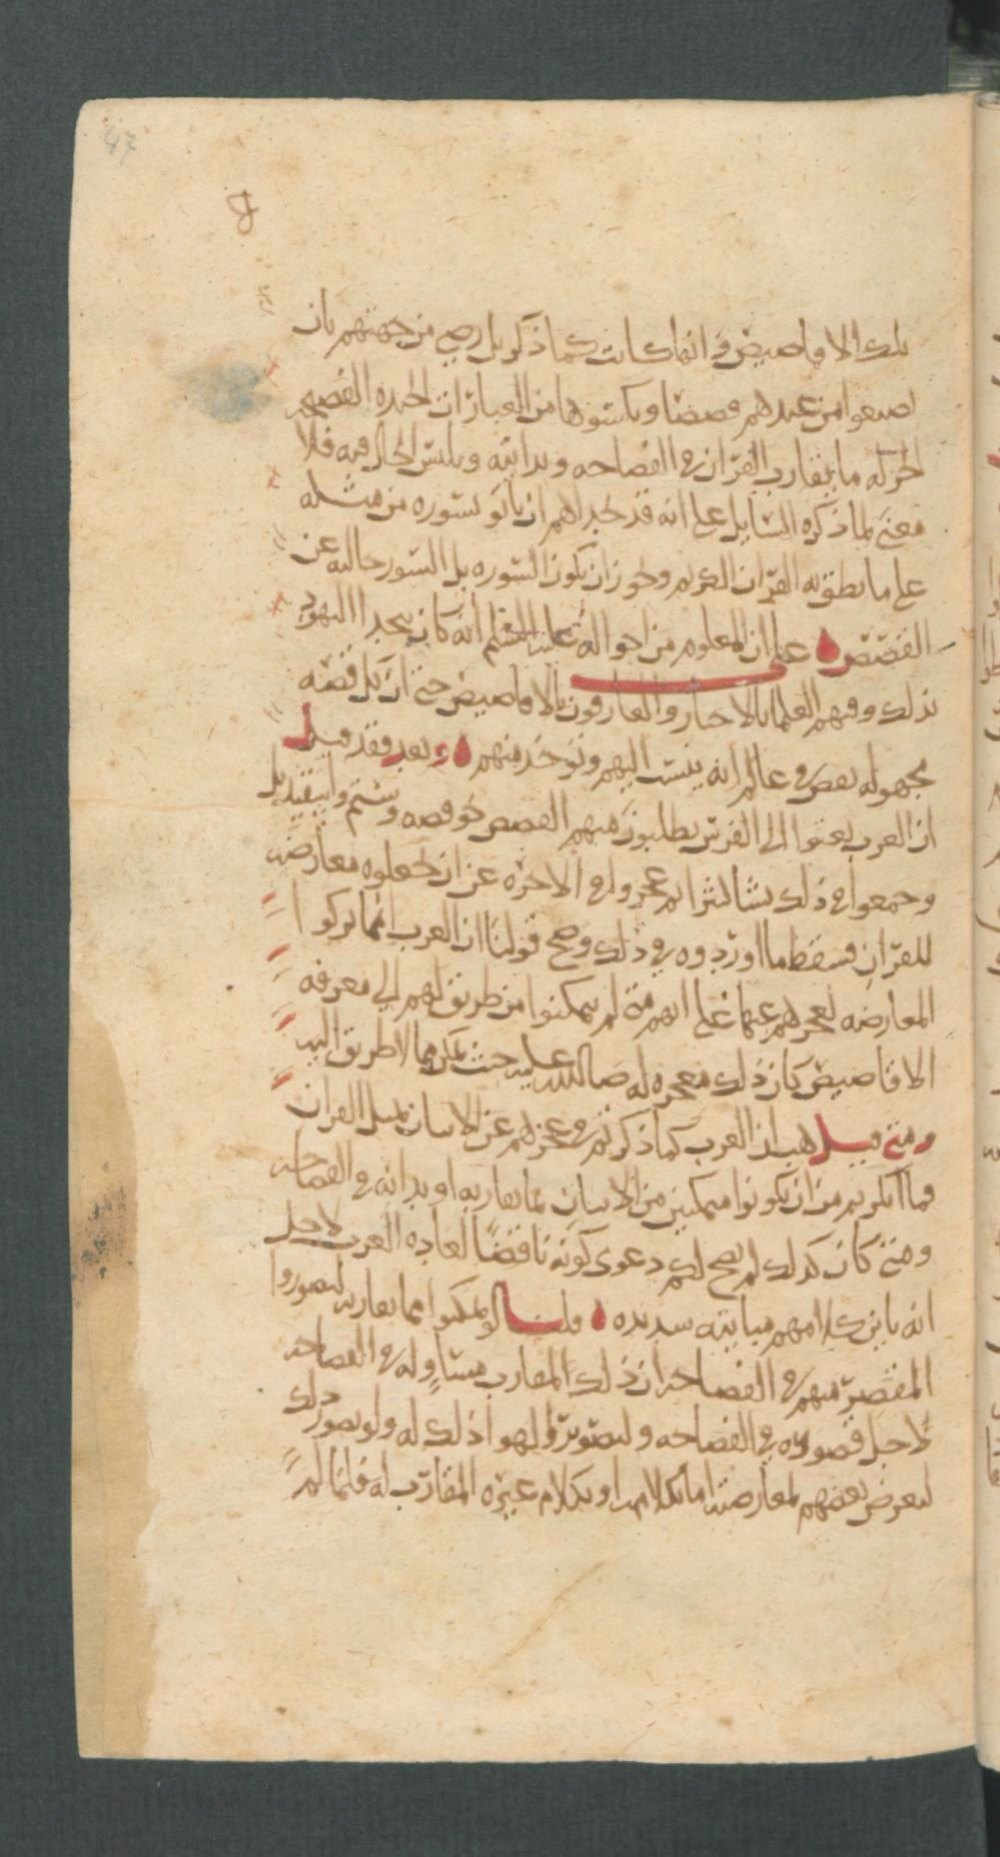 47
تلك الاقاصيص وانها كانت كما ذكر بل رضي من جهتهم بان
يصنعوا من عندهم قصصا ويكسوها من العبارات الجيده الفصيحه
الجزله ما يقارب القرآن في الفصاحه ويدانيه ويلتبس الحال فيه فلا
معنى لما ذكره السايل على انه قد تحداهم ان ياتو بسوره من مثله
على ما نطق به القرآن الكريم ويجوز ان يكون السوره بل السور خاليه عن
القصص على ان المعلوم من احواله عليه السلم انه كان يتحدا اليهود
بذلك وفيهم العلما بالاخبار والعارفون بالاقاصيص حتى ان كل قصه
مجهوله بعض في عالم انه ينسب اليهم وتوخذ منهم وبعد فقد قيل
ان العرب بعثوا الى الفرس يطلبون منهم القصص نحو قصه رستم واسفنديار
وجمعوا في ذلك شيا كثيرا ثم عجزوا في الاخره عن ان يجعلوه معارضه
للقرآن فسقط ما اوردوه في ذلك وصح قولنا ان العرب انما تركوا
المعارضه لعجزهم عنها على انهم متى لم يتمكنوا من طريق لهم الى معرفه
الاقاصيص كان ذلك معجزه له صلى الله عليه حيث تمكن مما لا طريق اليه
ومتى قيل هب ان العرب كما ذكرتم في عجزهم عن الاتيان بمثل القرآن
فما انكرتم من ان يكونوا متمكنين من الاتيان بما يقاربه او يدانيه في الفصاحه
ومتى كان كذلك لم يصح لكم دعوى كونه ناقضا لعاده العرب لاجل
انه باين كلامهم مباينه شديده قلنا لو تمكنوا مما يقاربه لتصوروا
المقصر منهم في الفصاحه ان ذلك المقارب مساو له في الفصاحه
لاجل قصوره في الفصاحه ولصوروا لهواذلك له ولو تصور ذلك
لتعرض بعضهم لمعارضته اما بكلامه او بكلام غيره المقارب له فلما لم